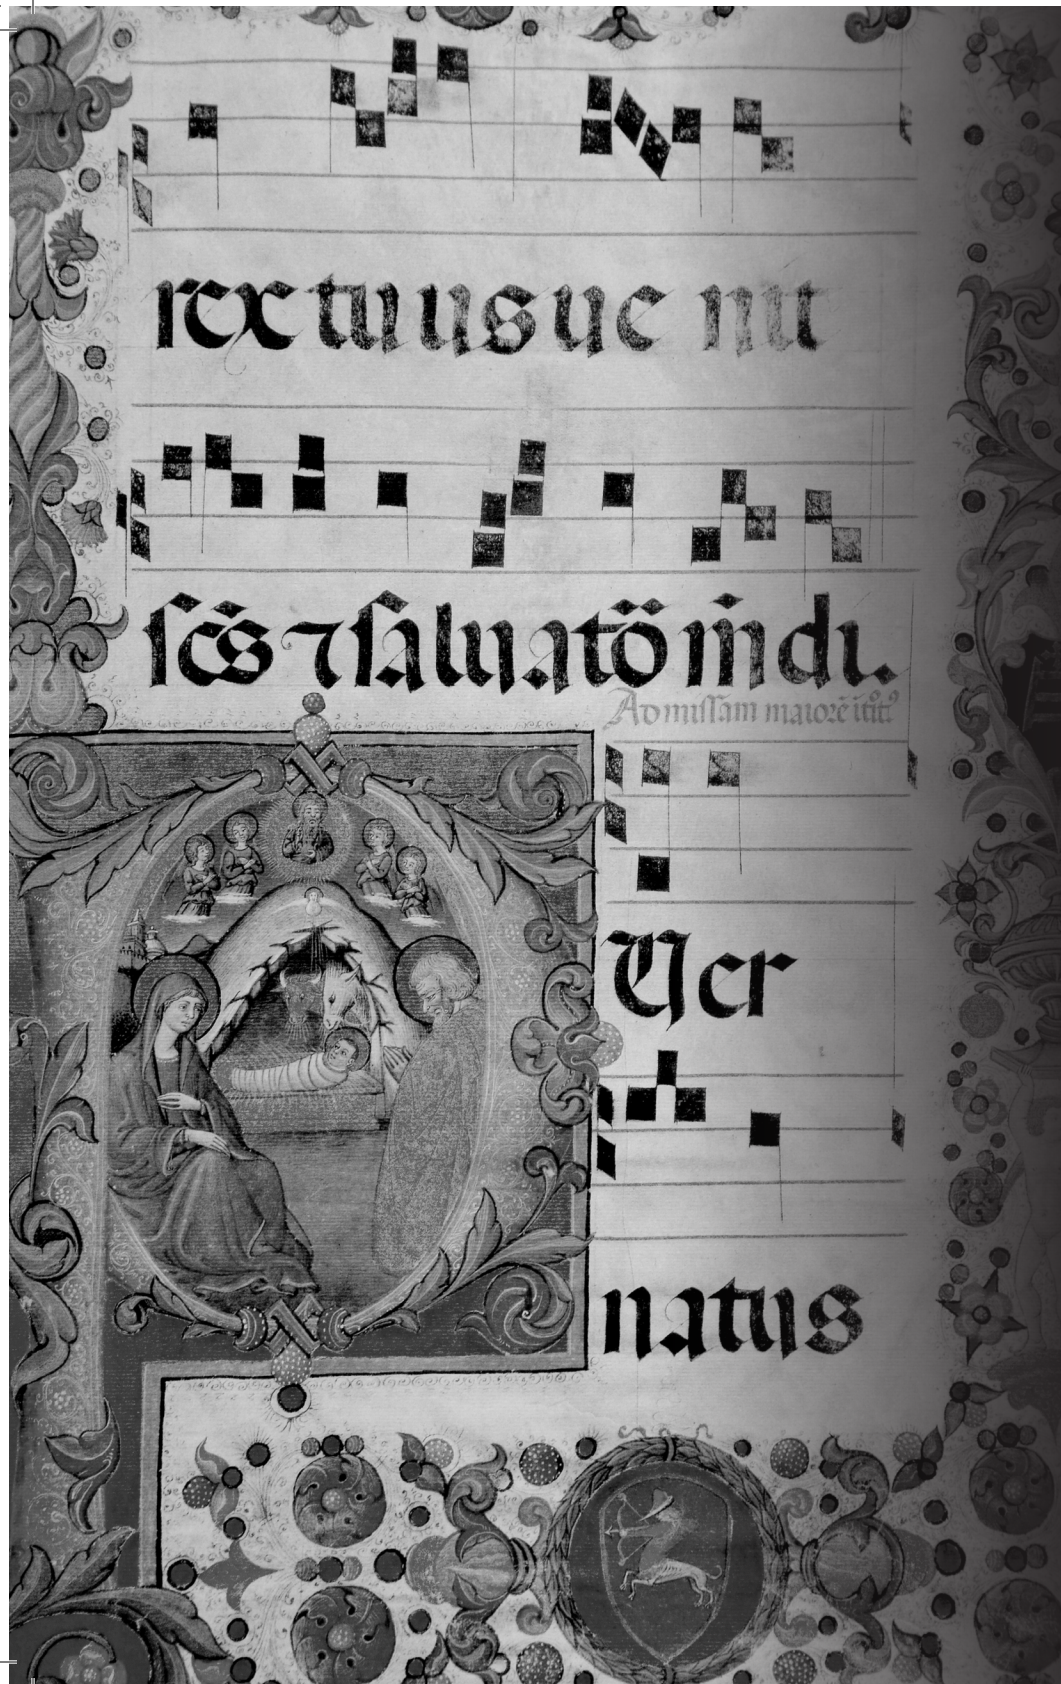 rex tuus ue nit
scs ⁊ saluato mdi.
Ad missam maiorē
Uer
natus